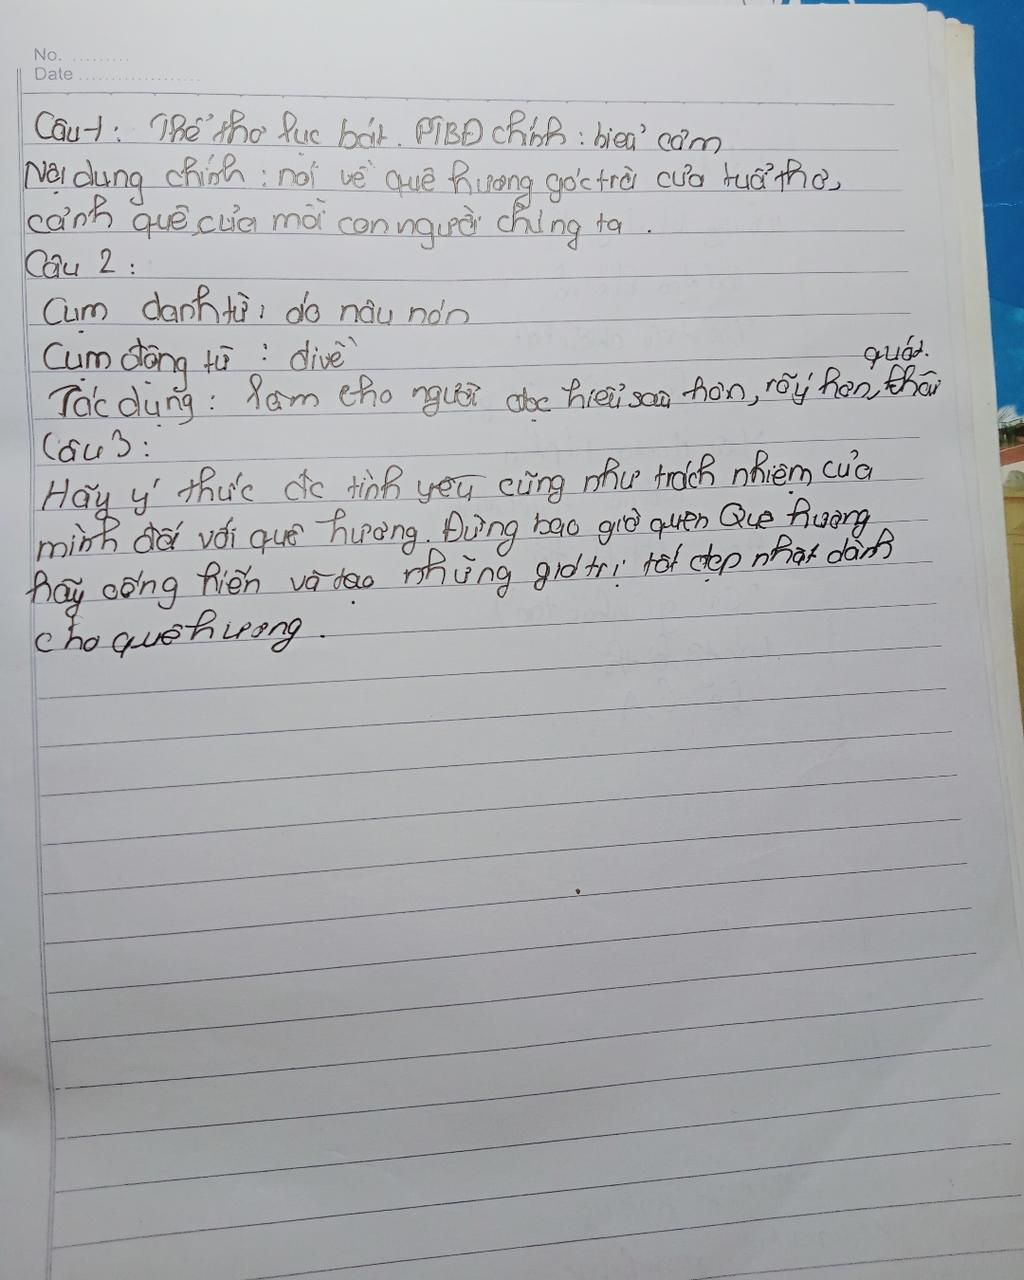 No. .........
Date ...................
Câu 1: Thể thơ lục bát. PTBĐ chính: biểu cảm
Nội dung chính: nói về quê hương góc trời của tuổi thơ,
cảnh quê của mỗi con người chúng ta.
Câu 2:
Cụm danh từ: áo nâu nón
Cụm động từ: đi về
quát.
Tác dụng: làm cho người đọc hiểu sau hơn, rõ ý hơn, khái
Câu 3:
Hãy ý thức đc tình yêu cũng như trách nhiệm của
mình đối với quê hương. Đừng bao giờ quên Quê hương
hãy cống hiến và tạo những giá trị tốt đẹp nhất dành
cho quê hương.